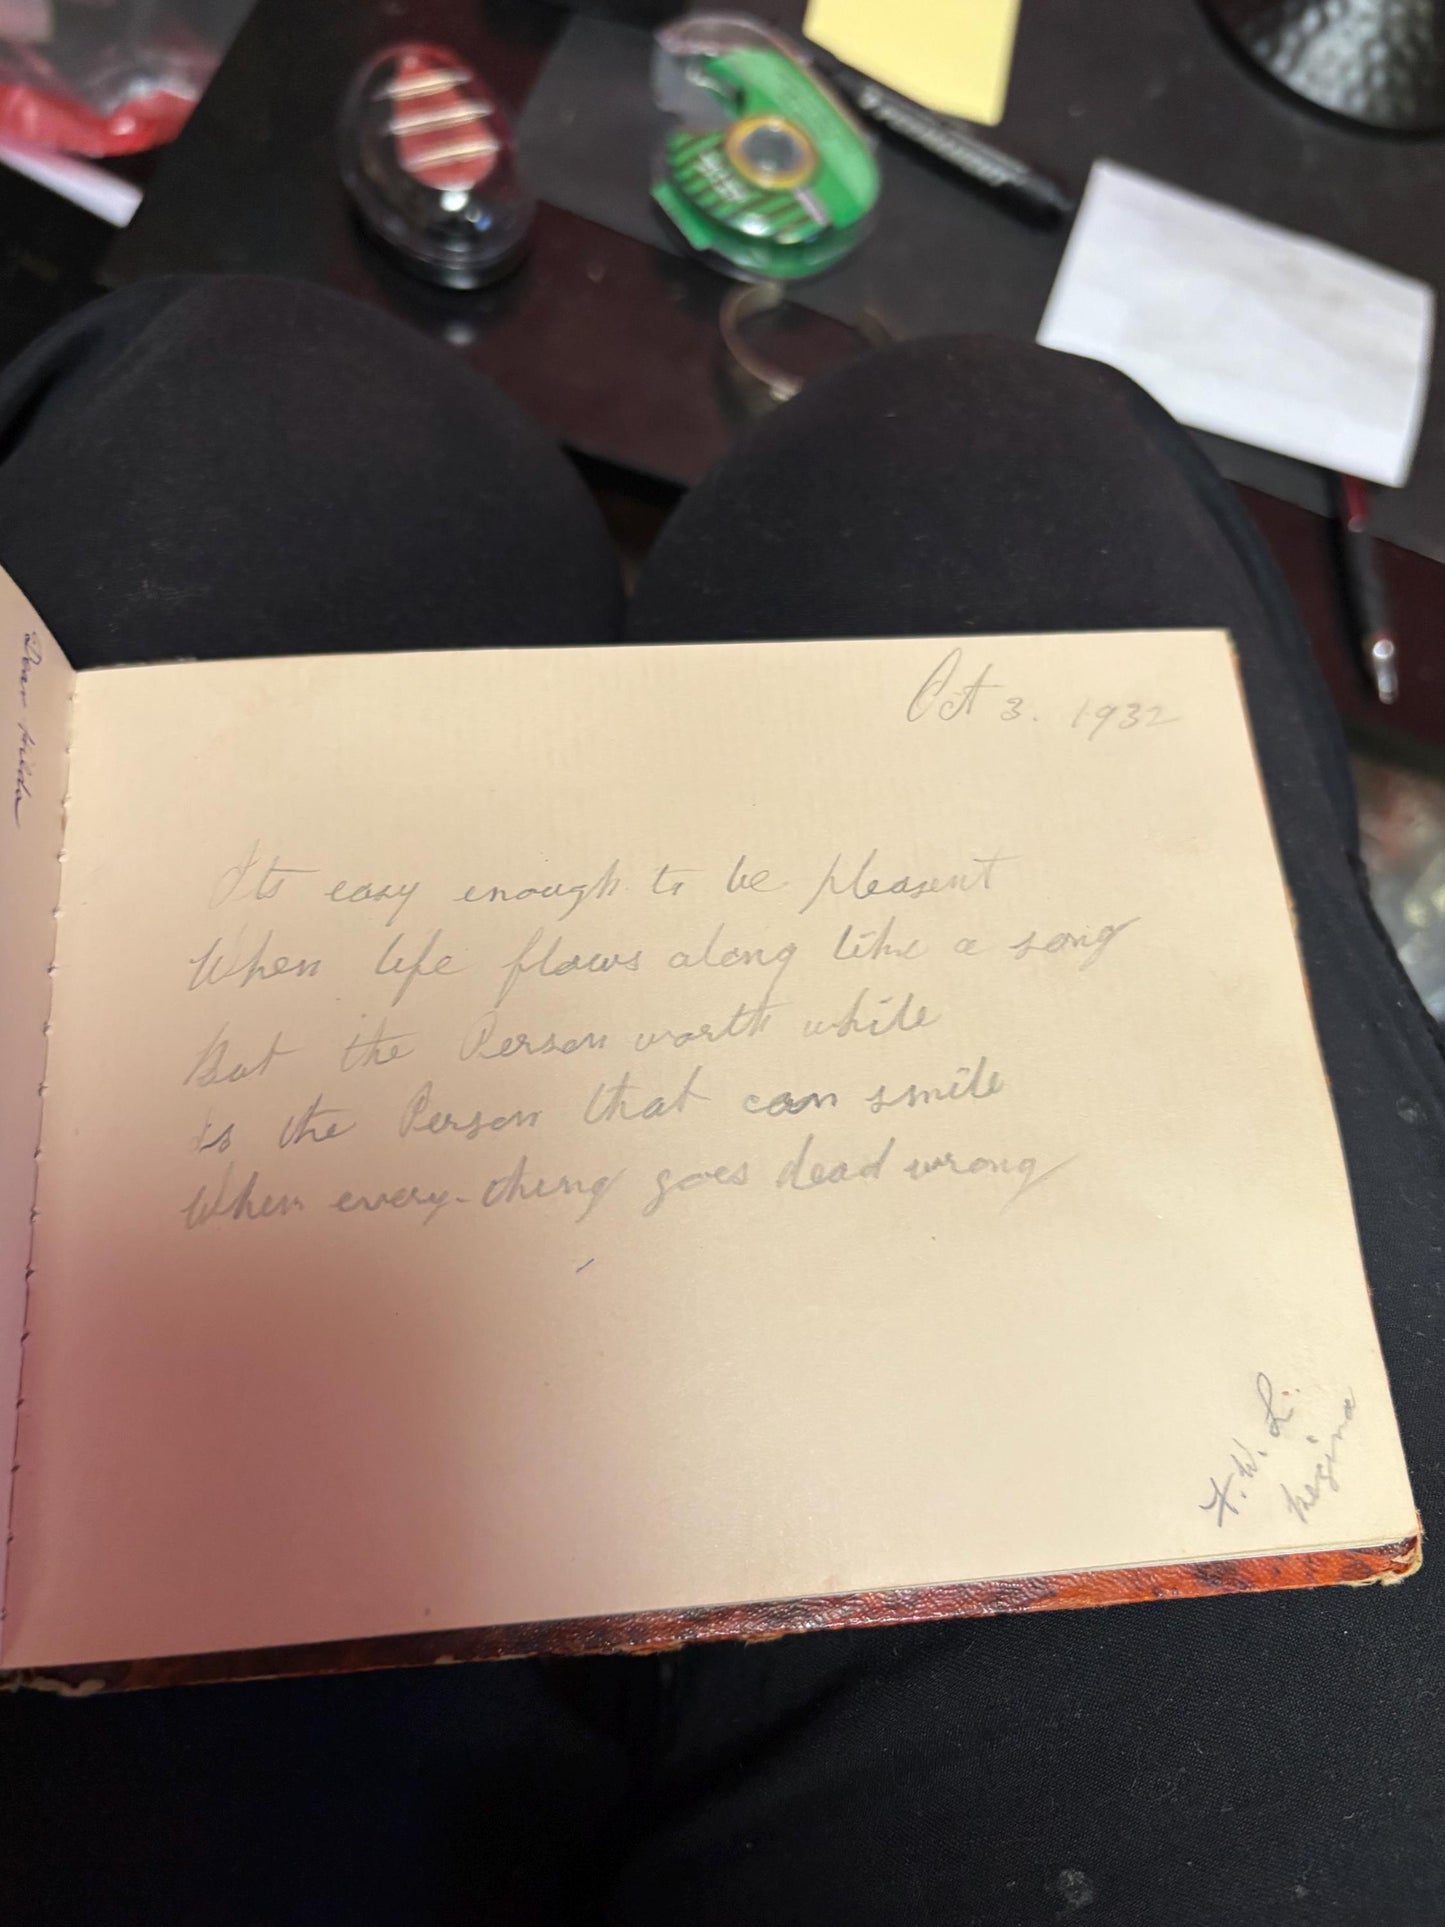 Dear Hilda
Oct 3. 1932
Its easy enough to be pleasent
When life flows along like a song
But the Person worth while
Is the Person that can smile
When every-thing goes dead wrong
F. W. L.
Regina